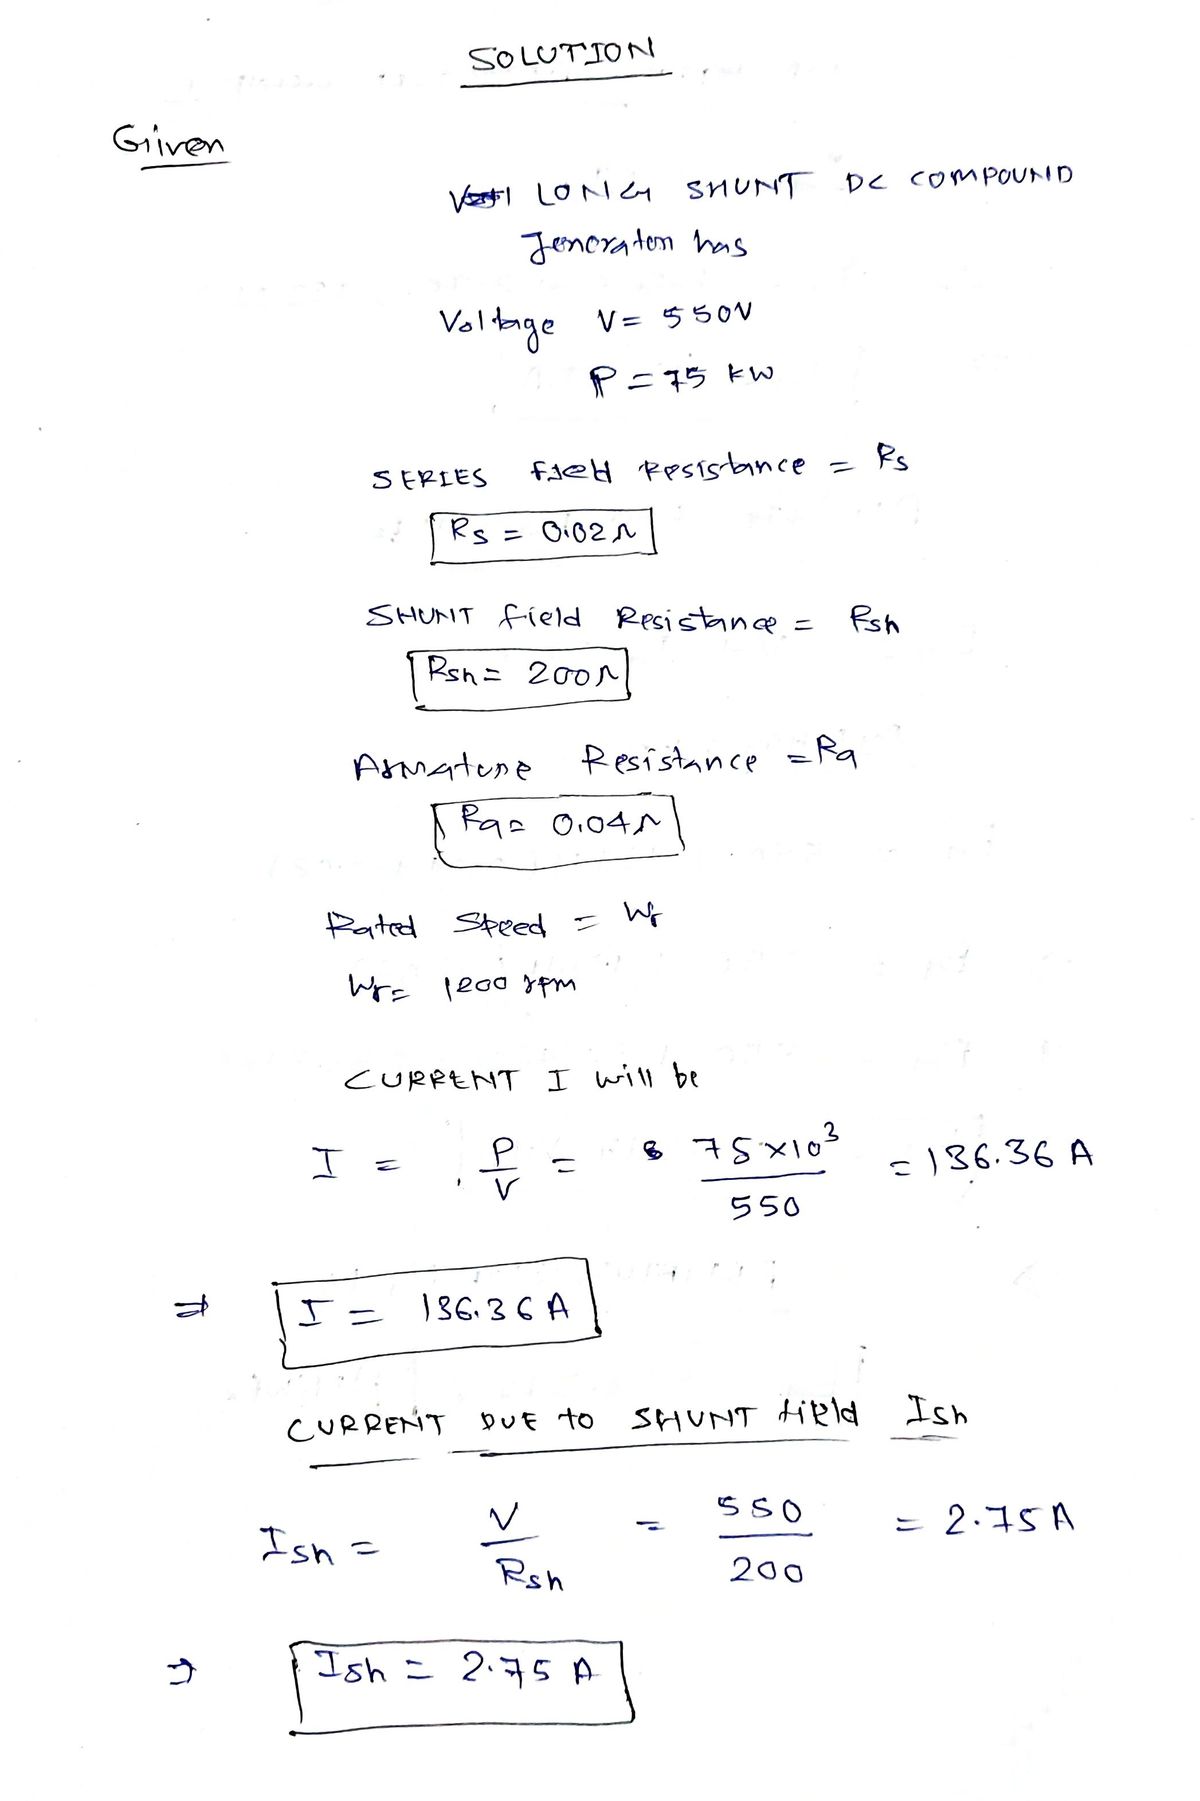 SOLUTION
Given
LONG SHUNT DC COMPOUND
Jenerator has
Voltage V = 550V
P = 75 kW
SERIES field Resistance = Rs
Rs = 0.02Ω
SHUNT field Resistance = Rsh
Rsh = 200Ω
Armature Resistance = Ra
Ra = 0.04Ω
Rated Speed = Wr
Wr = 1200 rpm
CURRENT I will be
I = P/V = 75×10³/550 = 136.36 A
⇒ I = 136.36 A
CURRENT DUE to SHUNT field Ish
Ish = V/Rsh = 550/200 = 2.75 A
⇒ Ish = 2.75 A